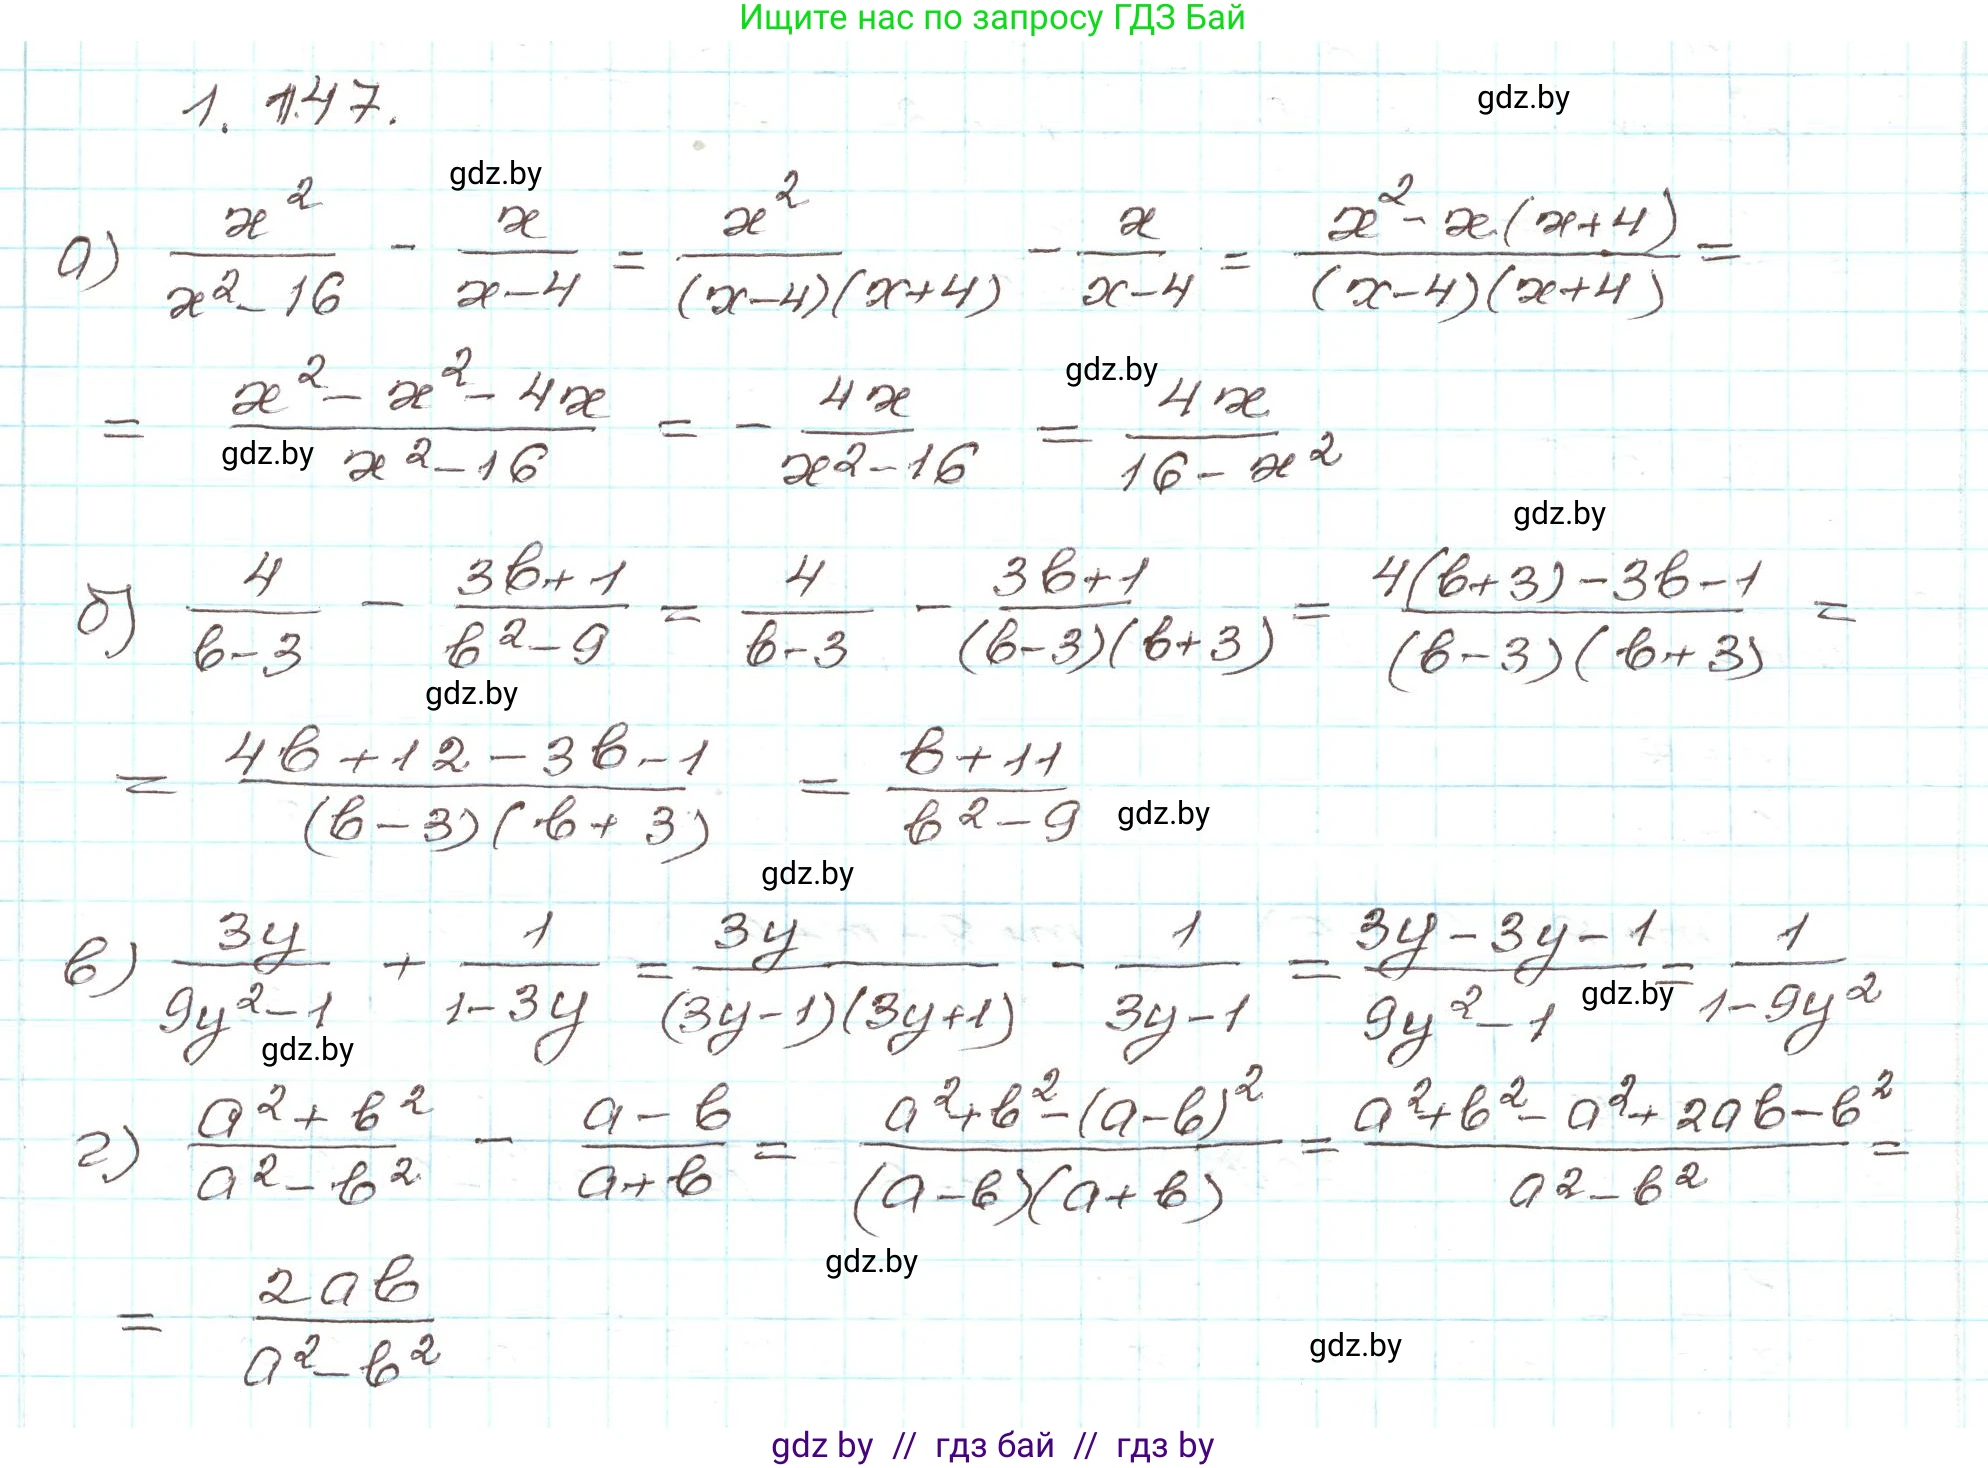 Ищите нас по запросу ГДЗ Бай
1.147.
gdz.by
gdz.by
а) x²/(x²-16) - x/(x-4) = x²/((x-4)(x+4)) - x/(x-4) = (x²-x(x+4))/((x-4)(x+4)) =
gdz.by
= (x²-x²-4x)/(x²-16) = - 4x/(x²-16) = 4x/(16-x²)
gdz.by
gdz.by
б) 4/(b-3) - (3b+1)/(b²-9) = 4/(b-3) - (3b+1)/((b-3)(b+3)) = (4(b+3)-3b-1)/((b-3)(b+3)) =
gdz.by
= (4b+12-3b-1)/((b-3)(b+3)) = (b+11)/(b²-9)
gdz.by
gdz.by
в) 3y/(9y²-1) + 1/(1-3y) = 3y/((3y-1)(3y+1)) - 1/(3y-1) = (3y-3y-1)/(9y²-1) = 1/(1-9y²)
gdz.by
gdz.by
г) (a²+b²)/(a²-b²) - (a-b)/(a+b) = (a²+b²-(a-b)²)/((a-b)(a+b)) = (a²+b²-a²+2ab-b²)/(a²-b²) =
gdz.by
= 2ab/(a²-b²)
gdz.by
gdz by // гдз бай // гдз by